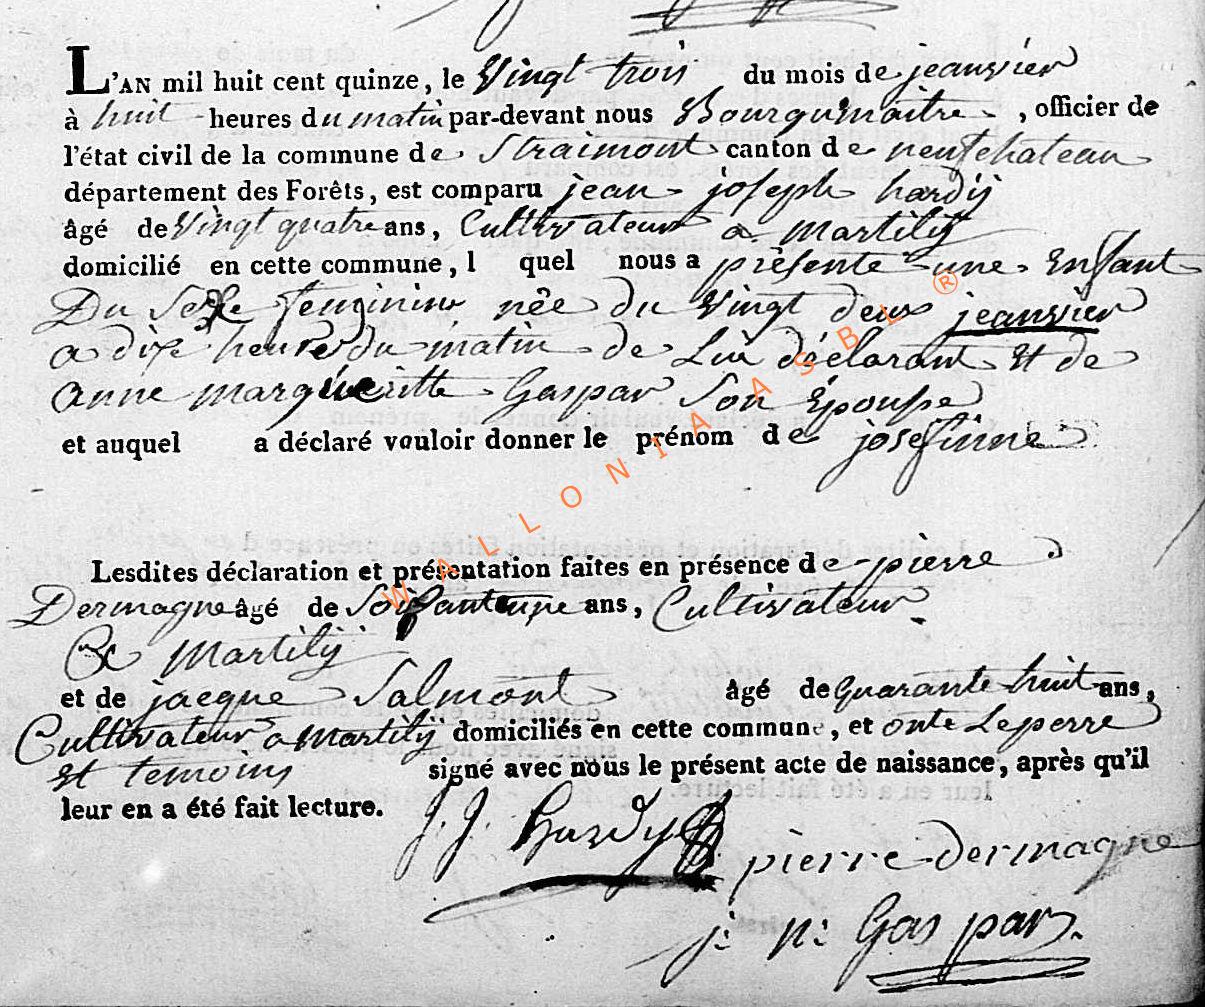 L'AN mil huit cent quinze, le Vingt trois du mois de jeanvier
à huit heures du matin par-devant nous Bourgumaitre, officier de
l'état civil de la commune de Straimont canton de neufchateau
département des Forêts, est comparu jean joseph hardÿ
âgé de Vingt quatre ans, Cultivateur a martilÿ
domicilié en cette commune, l quel nous a présente une Enfant
Du Sexe feminine née du Vingt deux jeanvier
a dixe heure du matin de Lui déclarant Et de
anne margueritte Gaspar Son Épouse
et auquel a déclaré vouloir donner le prénom de josefinne
Lesdites déclaration et présentation faites en présence de pierre
Dermagne âgé de Soixante ans, Cultivateur
De Martilÿ
et de jacque Salmont âgé de quarante huit ans,
Cultivateur a martilÿ domiciliés en cette commune, et onte Le perre
Et temoins signé avec nous le présent acte de naissance, après qu'il
leur en a été fait lecture.
J. J. Hardy
pierre dermagne
j: n: Gaspar
WALLONIA ASBL ®